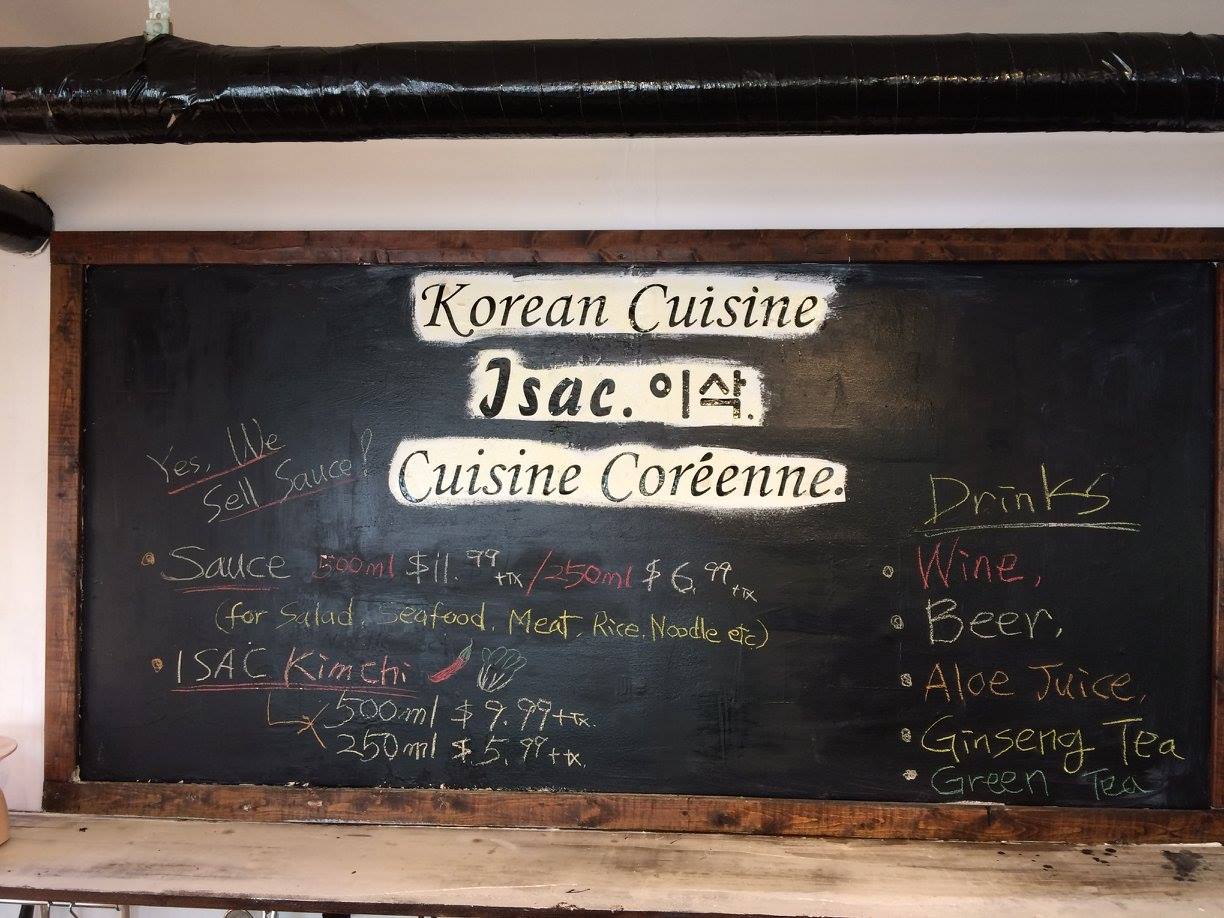 Korean Cuisine
Isac. 이삭.
Cuisine Coréenne.
Yes, We
Sell Sauce!
Sauce 500ml $11.99+TX /250ml $6.99+TX
(for Salad, Seafood, Meat, Rice, Noodle etc)
ISAC Kimchi
500ml $9.99+TX.
250ml $5.99+TX.
Drinks
Wine,
Beer,
Aloe Juice,
Ginseng Tea
Green Tea